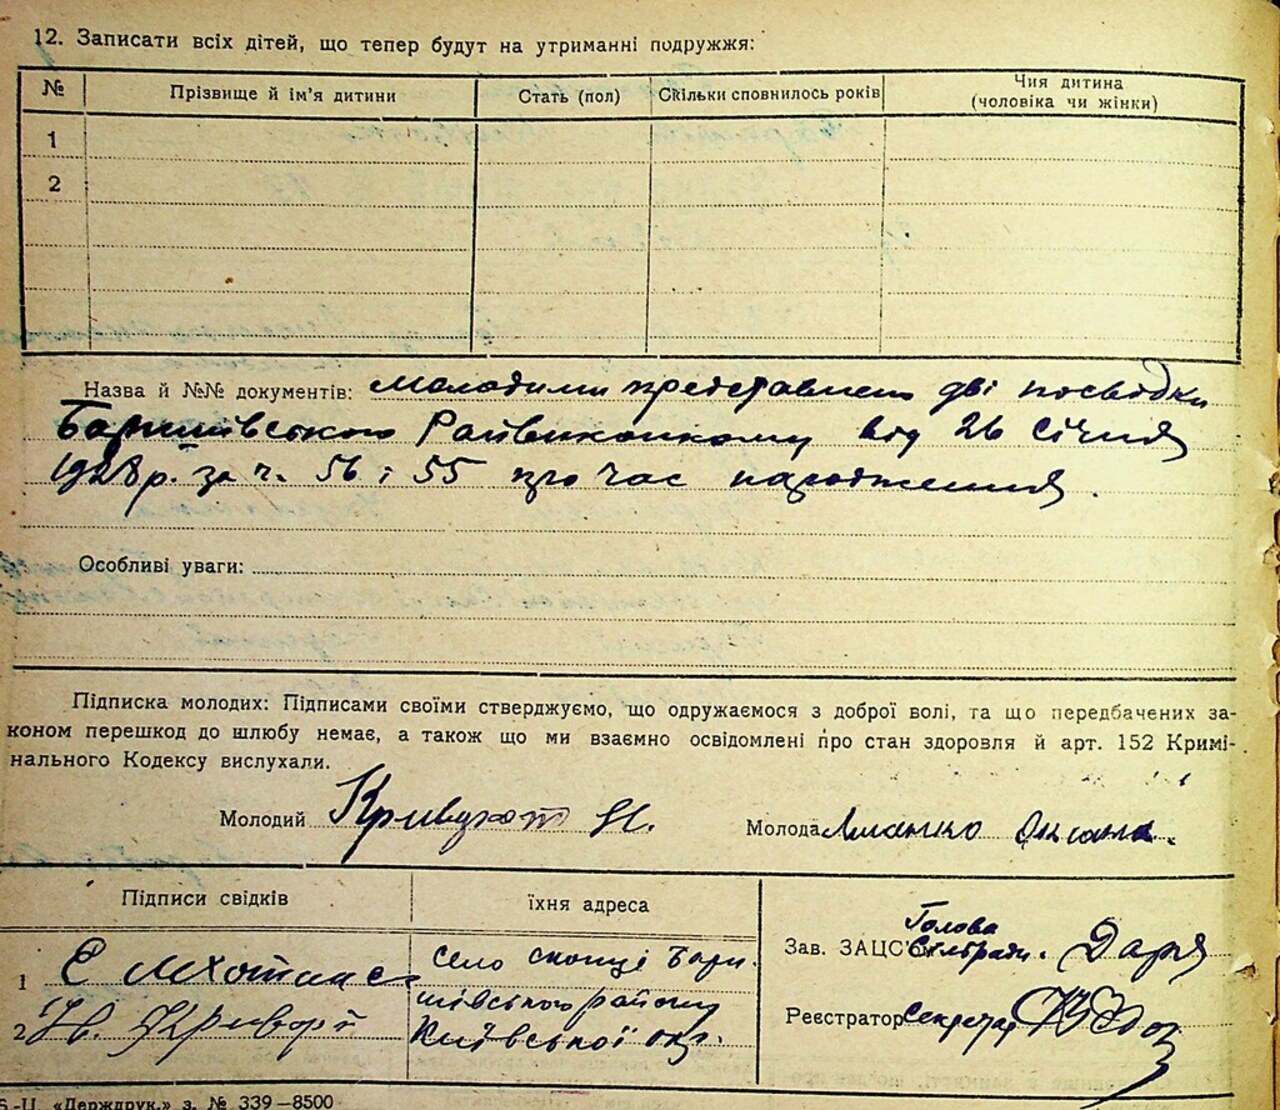 12. Записати всіх дітей, що тепер будут на утриманні подружжя:
№ Прізвище й ім'я дитини Стать (пол) Скільки сповнилось років Чия дитина
(чоловіка чи жінки)
1
2
Назва й №№ документів: молодими представлено дві посвідки
Баришівського Райвиконкому від 26 січня
1928 р. за ч. 56 і 55 про час народження.
Особливі уваги:
Підписка молодих: Підписами своїми стверджуємо, що одружаємося з доброї волі, та що передбачених за-
коном перешкод до шлюбу немає, а також що ми взаємно освідомлені про стан здоровля й арт. 152 Кримі-
нального Кодексу вислухали.
Молодий Молода Оксана.
Підписи свідків їхня адреса
Голова
Зав. ЗАЦС' Сільради.
1 село скопці Бари-
шівського району
2 Київської окр.
Реєстратор Секретар
«Держдрук.» з. № 339—8500